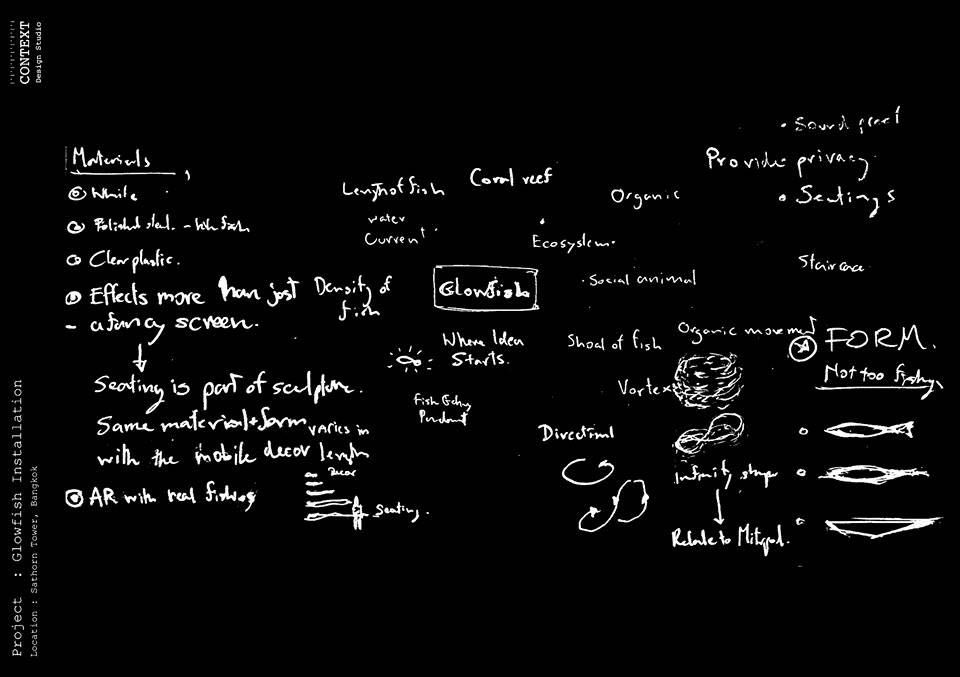 CONTEXT
Design Studio
Project : Glowfish Installation
Location : Sathorn Tower, Bangkok
Materials
White
Polished steel. -
Clear plastic.
Effects more than just
- a fancy screen.
Seating is part of sculpture.
Same material + form
with the mobile decor
varies in
length
AR with real fish
Decor
Seating.
Length of fish
Water
Current
Density of
fish
Coral reef
Ecosystem.
Glowfish
Where Idea
Starts.
Fish
Pendant
Organic
Social animal
Shoal of fish
Organic movement
Vortex
Directional
Infinity shape
Relate to
Sound proof
Provide privacy
Seatings
Staircase
FORM.
Not too fishy